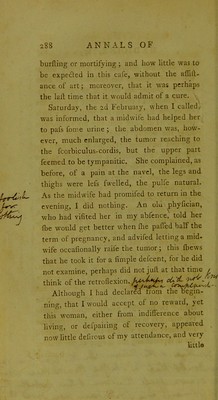 288 ANNALS OF
burſting or mortifying; and how little was to
be expected in this caſe, without the aſſiſt-
ance of art; moreover, that it was perhaps
the laſt time that it would admit of a cure.
Saturday, the 2d February, when I called,
was informed, that a midwife had helped her
to paſs ſome urine; the abdomen was, how-
ever, much enlarged, the tumor reaching to
the ſcorbiculus-cordis, but the upper part
ſeemed to be tympanitic. She complained, as
before, of a pain at the navel, the legs and
thighs were leſs ſwelled, the pulſe natural.
As the midwife had promiſed to return in the
evening, I did nothing. An old phyſician,
who had viſited her in my abſence, told her
ſhe would get better when ſhe paſſed half the
term of pregnancy, and adviſed letting a mid-
wife occaſionally raiſe the tumor; this ſhews
that he took it for a ſimple deſcent, for he did
not examine, perhaps did not juſt at that time
think of the retroflexion. perhaps did not
Although I had declared from the begin-
ning, that I would accept of no reward, yet
this woman, either from indifference about
living, or deſpairing of recovery, appeared
now little deſirous of my attendance, and very
little